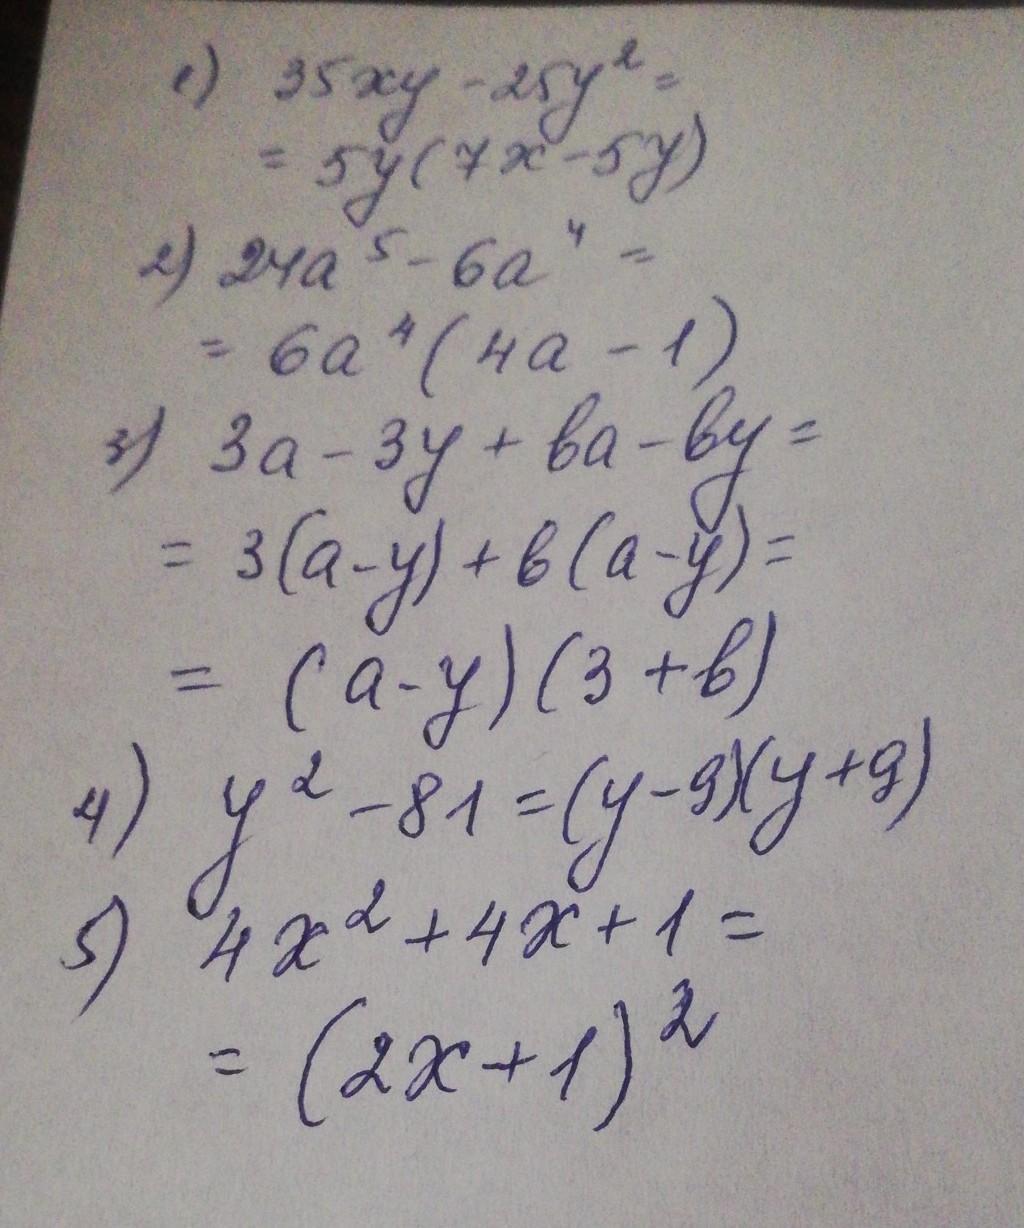 1) 35xy - 25y² =
= 5y(7x - 5y)
2) 24a⁵ - 6a⁴ =
= 6a⁴(4a - 1)
3) 3a - 3y + ba - by =
= 3(a - y) + b(a - y) =
= (a - y)(3 + b)
4) y² - 81 = (y - 9)(y + 9)
5) 4x² + 4x + 1 =
= (2x + 1)²